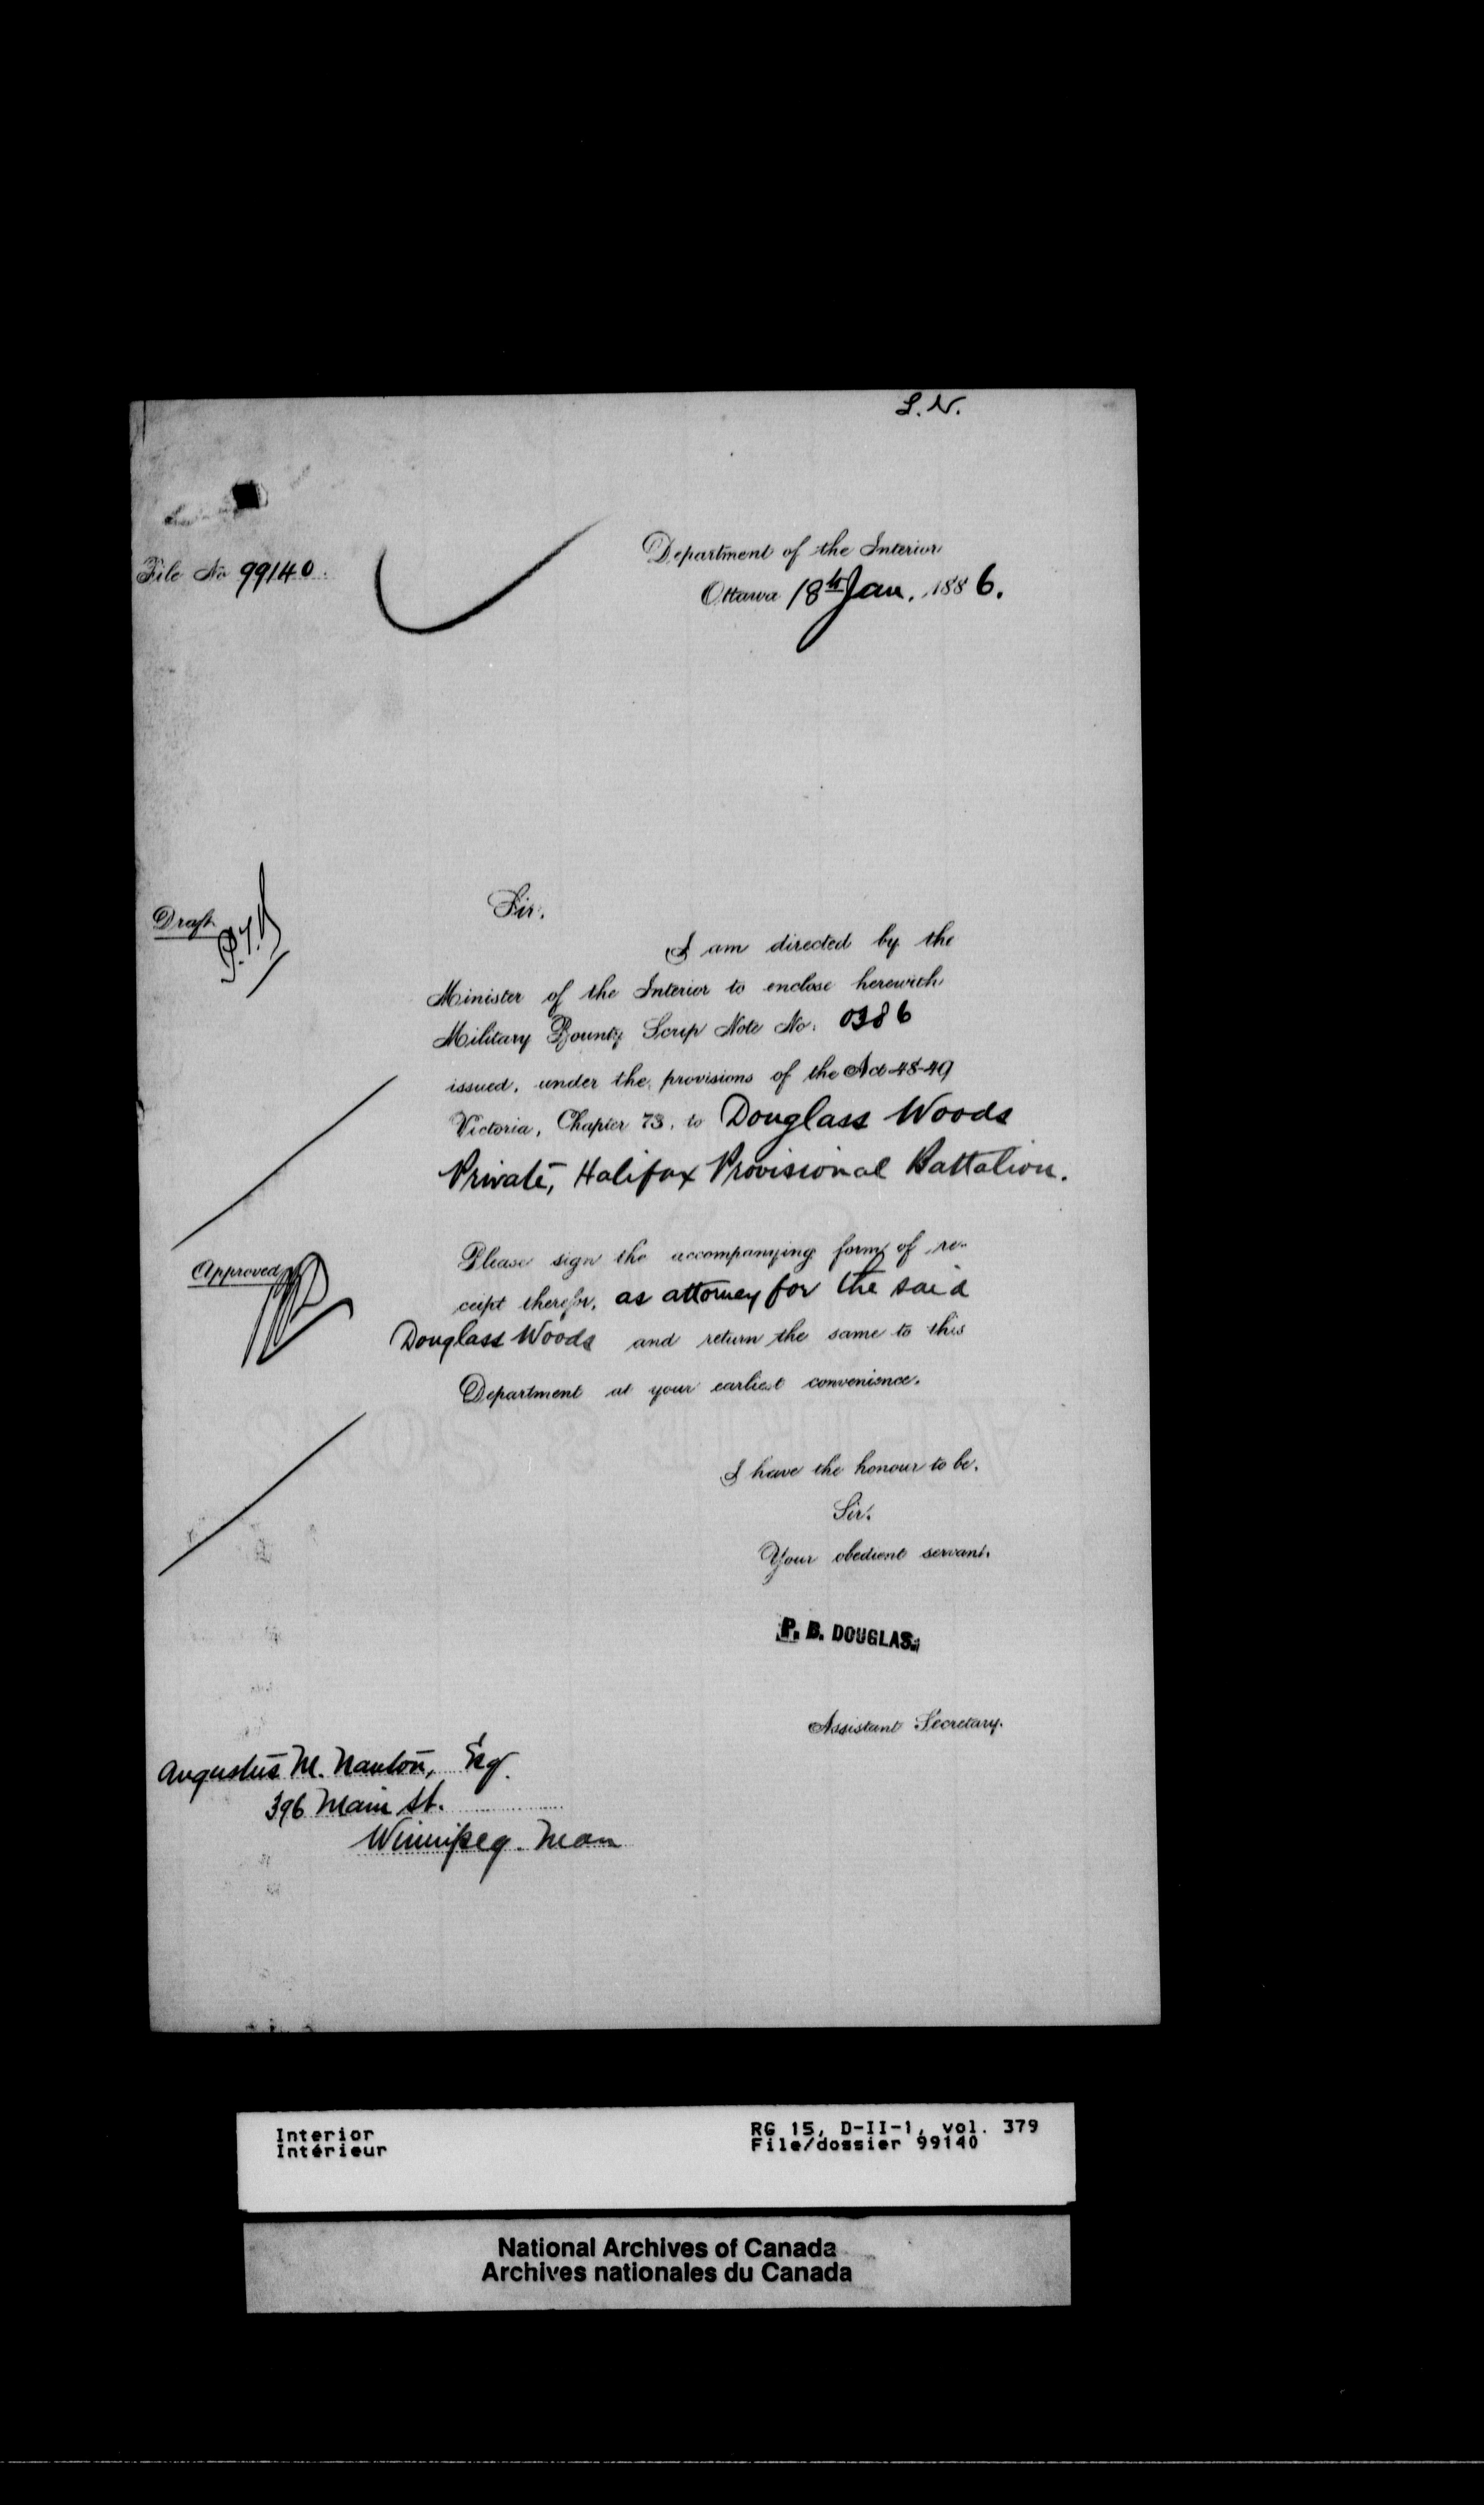 L. N.
File No 99140
Department of the Interior
Ottawa 18th Jan. 1886.
Draft
Sir,
I am directed by the
Minister of the Interior to enclose herewith
Military Bounty Scrip Note No. 0386
issued, under the provisions of the Act 48-49
Victoria, Chapter 73, to Douglass Woods
Private, Halifax Provisional Battalion.
Approved
Please sign the accompanying form of re-
ceipt therefor, as attorney for the said
Douglass Woods and return the same to this
Department at your earliest convenience.
I have the honour to be,
Sir,
Your obedient servant,
P. B. DOUGLAS.
Assistant Secretary.
Augustus M. Nanton, Esq.
396 Main St.
Winnipeg. Man
Interior
Intérieur
RG 15, D-II-1, vol. 379
File/dossier 99140
National Archives of Canada
Archives nationales du Canada